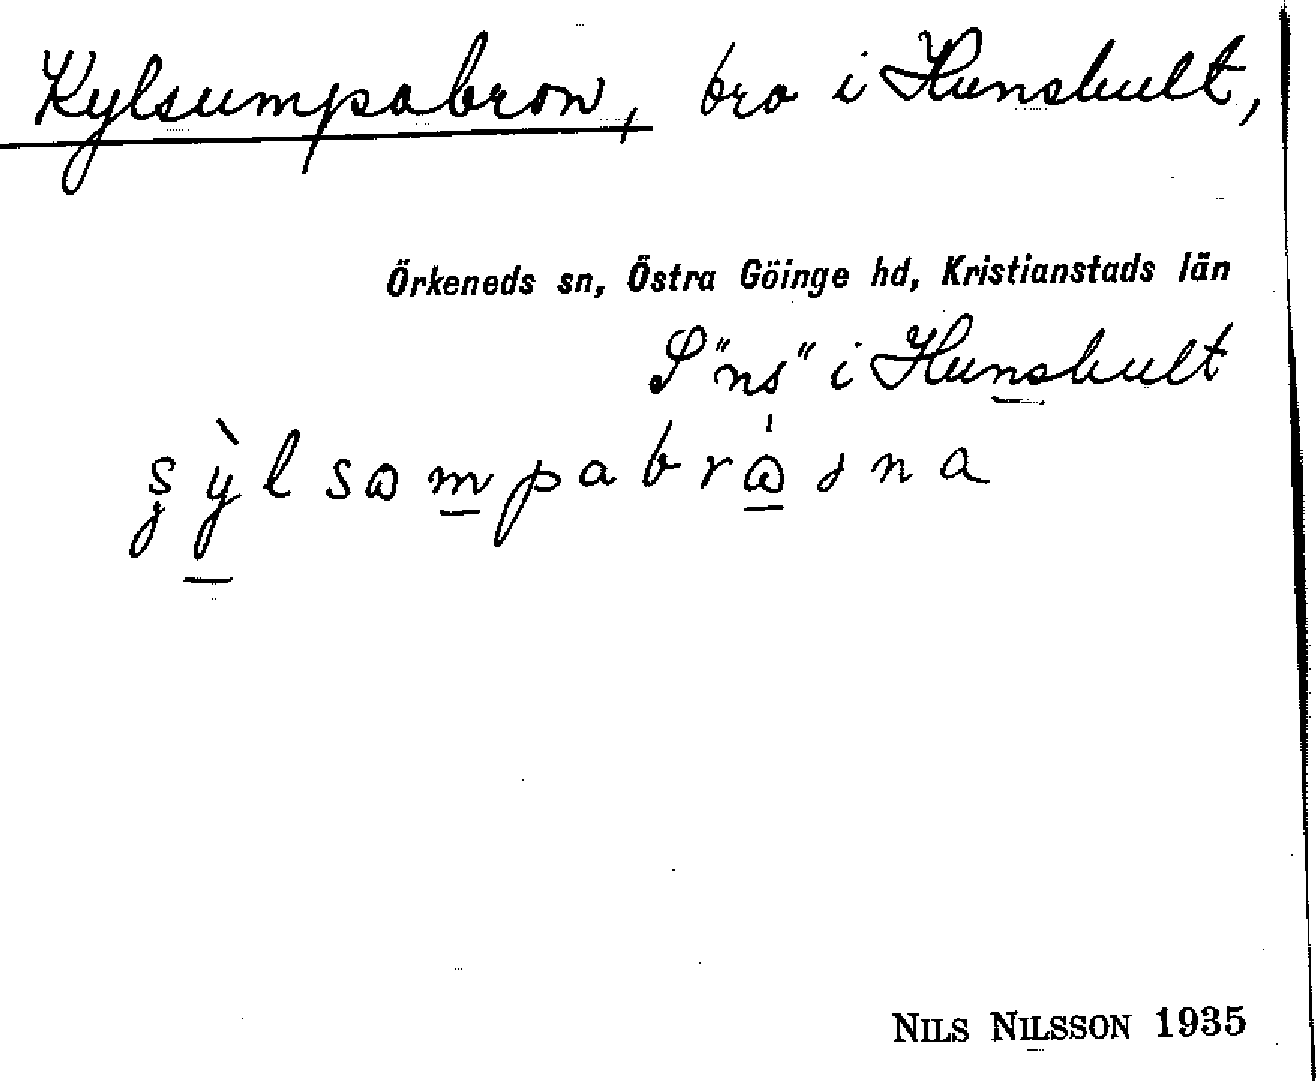 Kylsumpabron, bro i Hunshult,
Örkeneds sn, Östra Göinge hd, Kristianstads län
S "ns" i Hunshult
NILS NILSSON 1935